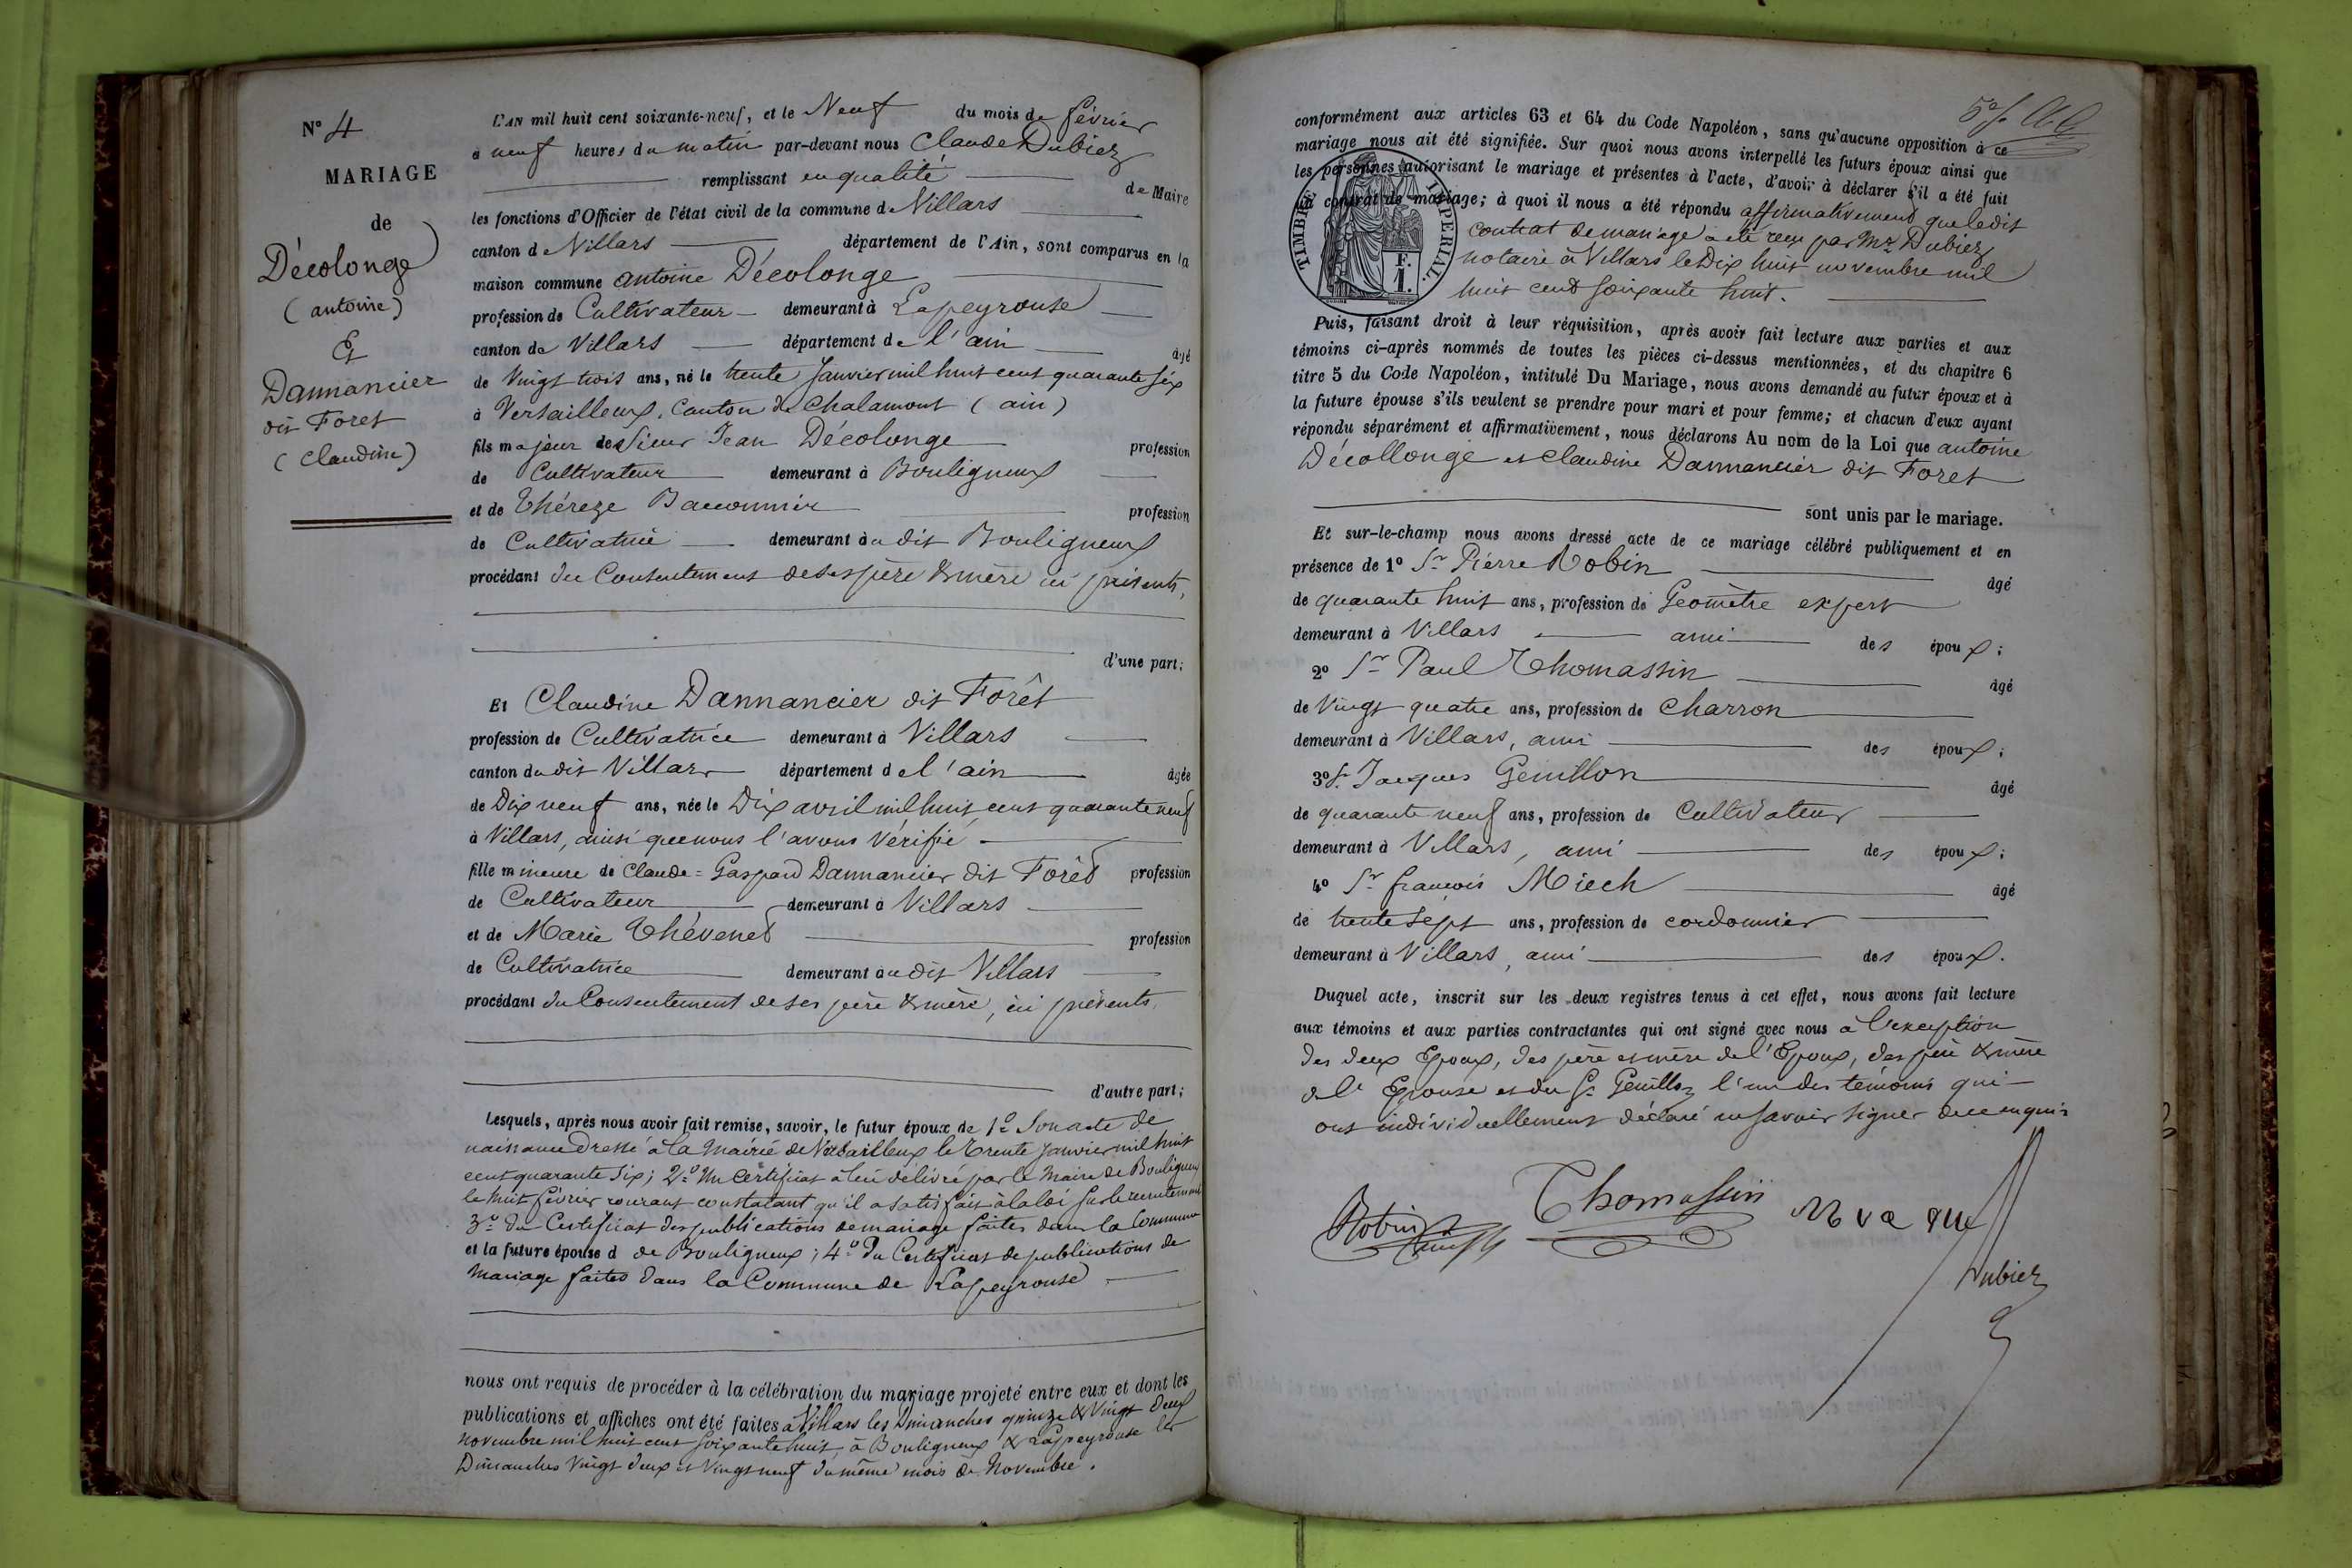 N° 4
MARIAGE
de
Décolonge
(antoine)
Et
Dannancier
dit Foret
(Claudine)
L'AN mil huit cent soixante-neuf, et le Neuf du mois de février
à neuf heures du matin par-devant nous Claude Dubiez
remplissant en qualité de Maire
les fonctions d'Officier de l'état civil de la commune de Villars
canton de Villars département de l'Ain, sont comparus en la
maison commune antoine Décolonge
profession de Cultivateur demeurant à Lapeyrouse
canton de Villars département de l'ain âgé
de Vingt trois ans, né le trente Janvier mil huit cent quarante six
à Versailleux, Canton de Chalamont (ain)
fils majeur de Sieur Jean Décolonge profession
de Cultivateur demeurant à Bouligneux
et de Théreze profession
de Cultivatrice demeurant au dit Bouligneux
procédant du Consentement de ses père & mère ici présents,
d'une part;
Et Claudine Dannancier dit Forêt
profession de Cultivatrice demeurant à Villars
canton du dit Villars département de l'ain âgée
de Dix neuf ans, née le Dix avril mil huit cent quarante neuf
à Villars, ainsi que nous l'avons vérifié
fille mineure de Claude=Gaspard Dannancier dit Forêt profession
de Cultivateur demeurant à Villars
et de Marie Thévenet profession
de Cultivatrice demeurant au dit Villars
procédant du Consentement de ses père & mère, ici présents,
d'autre part;
Lesquels, après nous avoir fait remise, savoir, le futur époux de 1° Son acte de
naissance dressé à la Mairie de Versailleux le trente janvier mil huit
cent quarante six; 2° Un certificat à lui délivré par le Maire de Bouligneux
le huit février courant constatant qu'il a satisfait à la loi sur le recrutement
3° du Certificat des publications de mariage faites dans la Commune
et la future épouse d de Bouligneux; 4° Du Certificat de publications de
Mariage faites dans la Commune de Lapeyrouse
nous ont requis de procéder à la célébration du mariage projeté entre eux et dont les
publications et affiches ont été faites à Villars les Dimanches quinze & Vingt deux
novembre mil huit cent soixante huit, à Bouligneux & Lapeyrouse les
Dimanches Vingt deux et Vingt neuf du même mois de Novembre.
conformément aux articles 63 et 64 du Code Napoléon, sans qu'aucune opposition à ce
mariage nous ait été signifiée. Sur quoi nous avons interpellé les futurs époux ainsi que
les personnes autorisant le mariage et présentes à l'acte, d'avoir à déclarer s'il a été fait
un contrat de mariage; à quoi il nous a été répondu affirmativement que le dit
contrat de mariage a été reçu par Mr Dubiez
notaire à Villars le Dix huit novembre mil
huit cent soixante huit.
TIMBRE IMPERIAL.
1 F.
Puis, faisant droit à leur réquisition, après avoir fait lecture aux parties et aux
témoins ci-après nommés de toutes les pièces ci-dessus mentionnées, et du chapitre 6
titre 5 du Code Napoléon, intitulé Du Mariage, nous avons demandé au futur époux et à
la future épouse s'ils veulent se prendre pour mari et pour femme; et chacun d'eux ayant
répondu séparément et affirmativement, nous déclarons Au nom de la Loi que antoine
Décollonge et Claudine Dannancier dit Foret
sont unis par le mariage.
Et sur-le-champ nous avons dressé acte de ce mariage célébré publiquement et en
présence de 1° Sr Pierre Robin âgé
de quarante huit ans, profession de Géomètre expert
demeurant à Villars ami des époux;
2° Sr Paul Thomassin âgé
de Vingt quatre ans, profession de charron
demeurant à Villars, ami des époux;
3° Sr Jacques Genillon âgé
de quarante neuf ans, profession de Cultivateur
demeurant à Villars, ami des époux;
4° Sr françois Miech âgé
de trente sept ans, profession de cordonnier
demeurant à Villars, ami des époux.
Duquel acte, inscrit sur les deux registres tenus à cet effet, nous avons fait lecture
aux témoins et aux parties contractantes qui ont signé avec nous à l'exception
des deux Epoux, des père et mère de l'Epoux, des père & mère
de l'Epouse et du Sr Genillon l'un des témoins qui
ont individuellement déclaré ne savoir signer de ce enquis
Robin
Thomassin
Dubiez